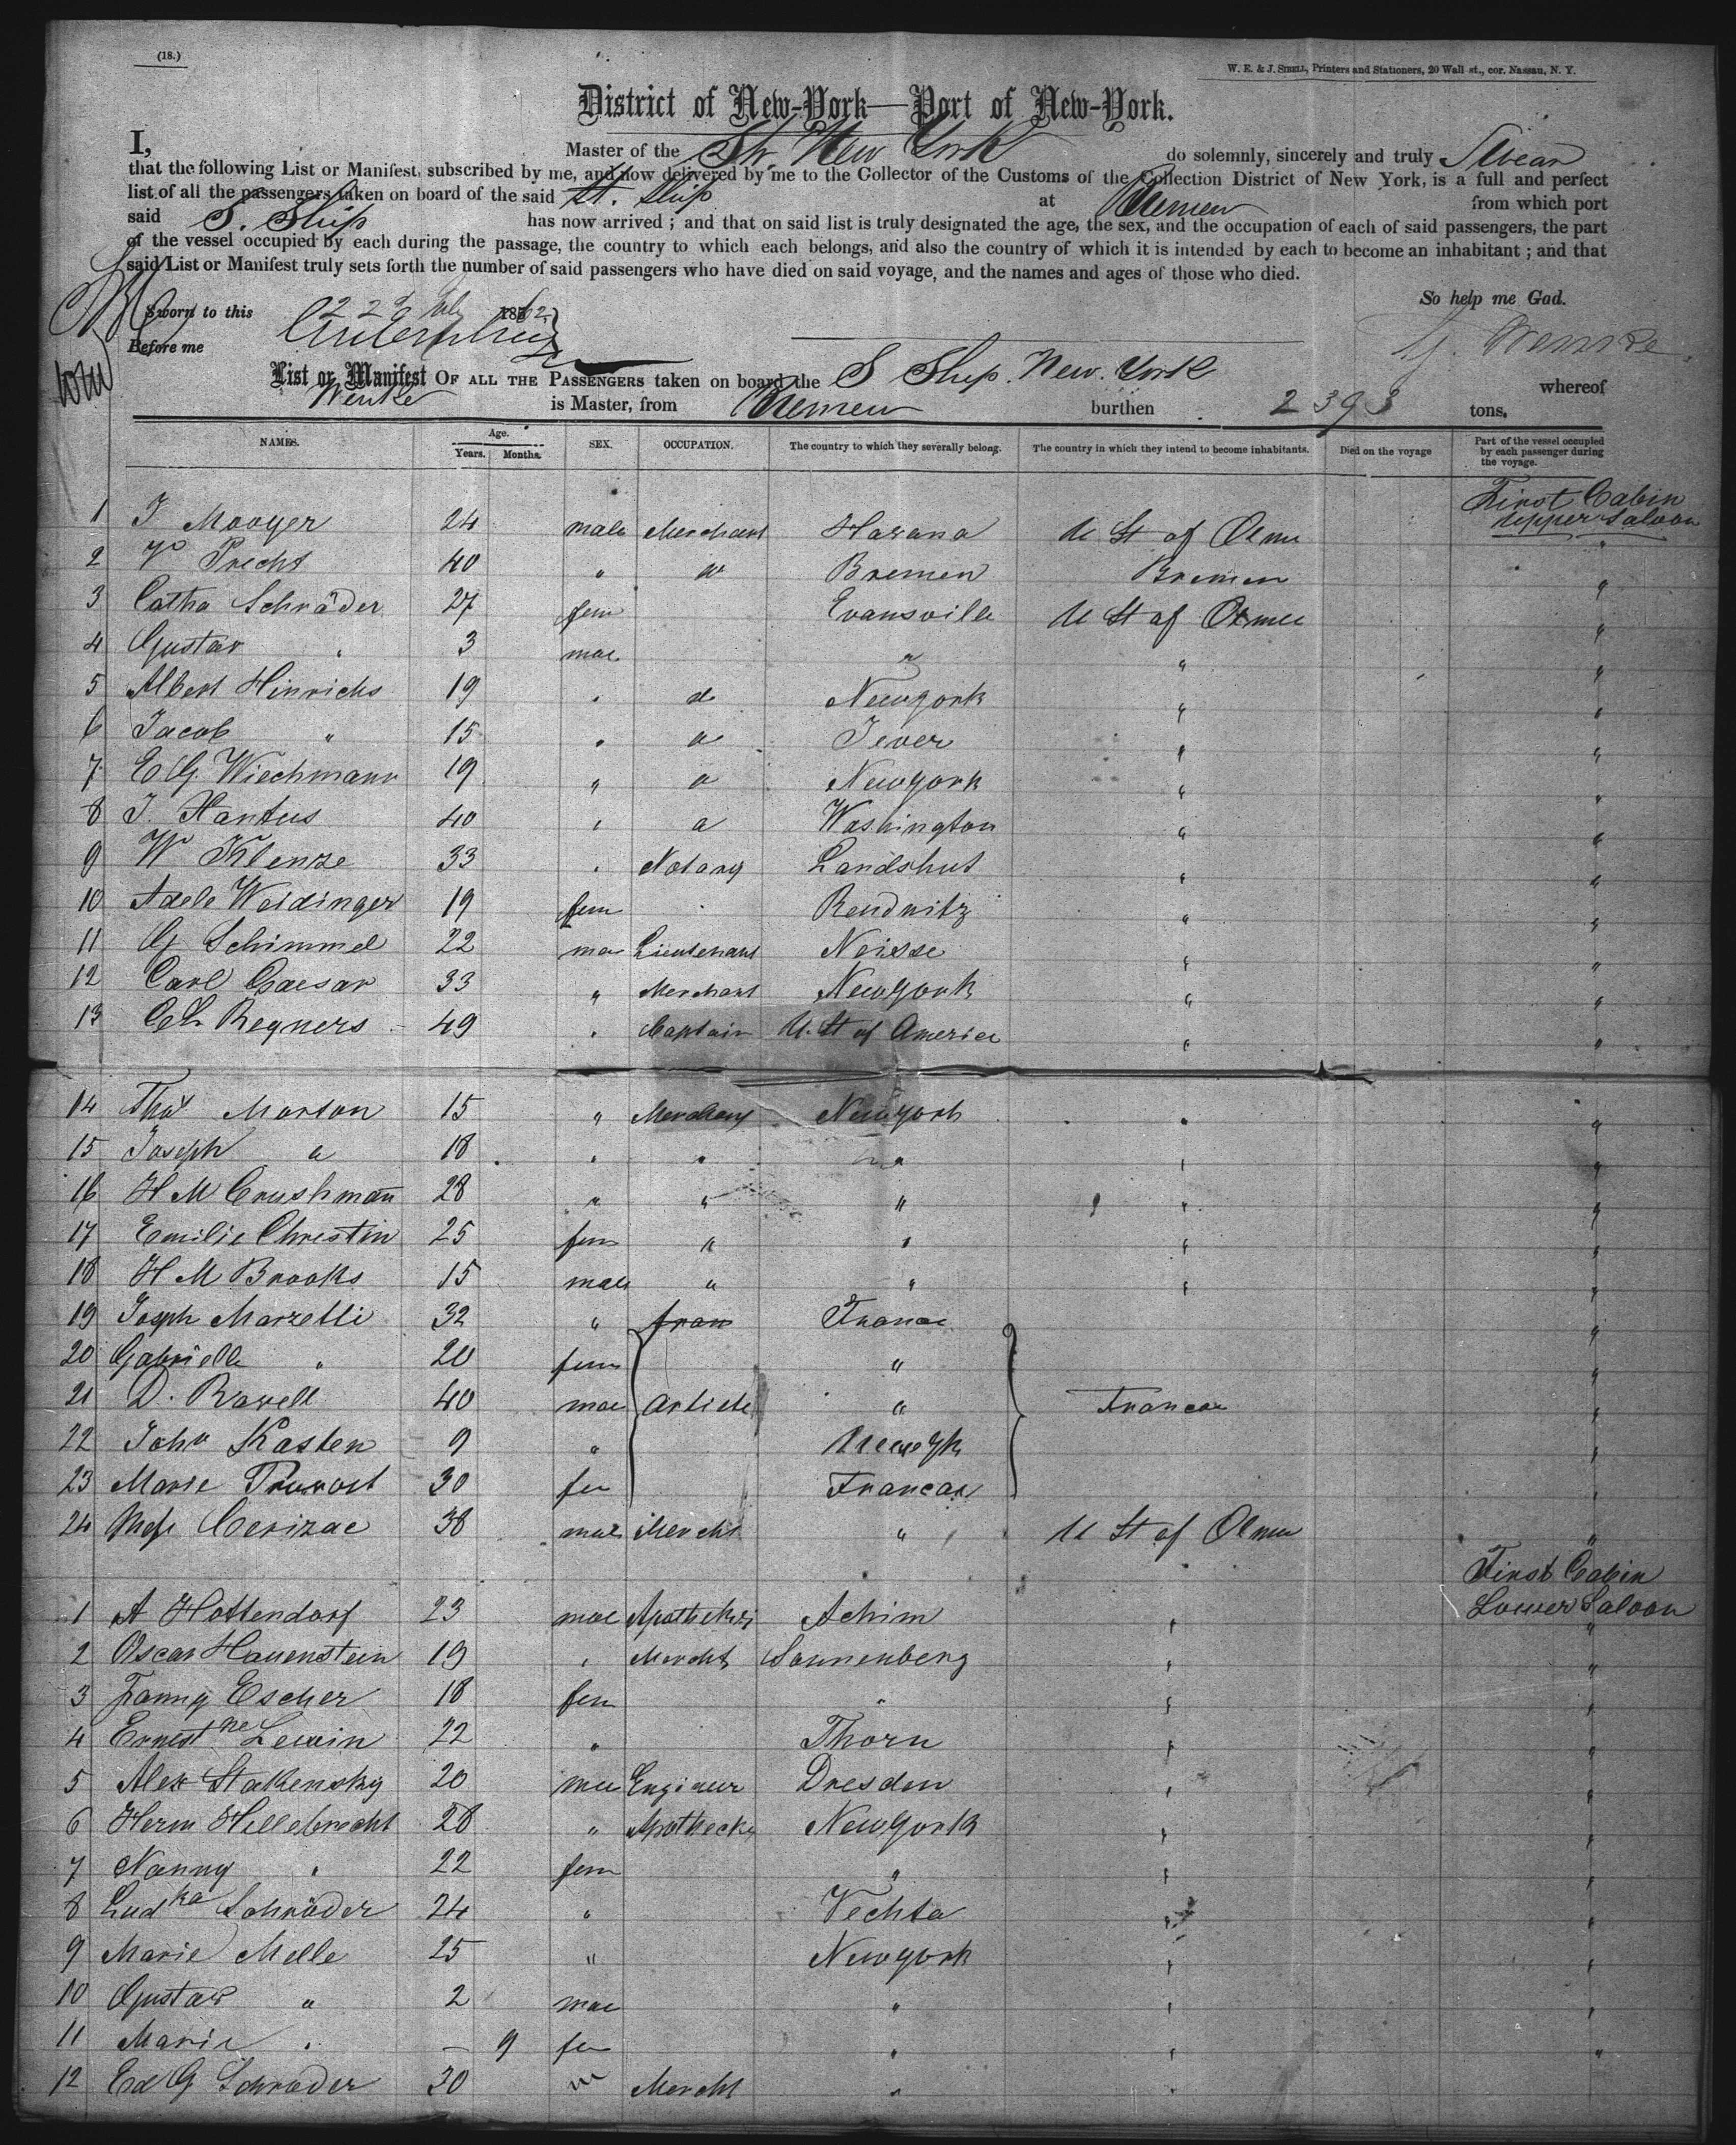 (18.)
W. E. & J. SIBELL, Printers and Stationers, 20 Wall st., cor. Nassau, N. Y.
District of New-York—Port of New-York.
I, Master of the St. New York do solemnly, sincerely and truly Swear
that the following List or Manifest, subscribed by me, and now delivered by me to the Collector of the Customs of the Collection District of New York, is a full and perfect
list of all the passengers taken on board of the said St. Ship at Bremen from which port
said S. Ship has now arrived ; and that on said list is truly designated the age, the sex, and the occupation of each of said passengers, the part
of the vessel occupied by each during the passage, the country to which each belongs, and also the country of which it is intended by each to become an inhabitant ; and that
said List or Manifest truly sets forth the number of said passengers who have died on said voyage, and the names and ages of those who died.
So help me God.
Sworn to this 22d July 1862
Before me
G. Wenke
List or Manifest OF ALL THE PASSENGERS taken on board the S Ship New York whereof
Wenke is Master, from Bremen burthen 2393 tons,
NAMES. Age. Years. Months. SEX. OCCUPATION. The country to which they severally belong. The country in which they intend to become inhabitants. Died on the voyage Part of the vessel occupied by each passenger during the voyage.
First Cabin
upper Saloon
1 J Mooyer 24 male Merchant Havana U St of Ame
2 V Precht 40 " " Bremen Bremen "
3 Catha Schräder 27 fem Evansville U St of Amee "
4 Gustav " 3 mae " " "
5 Albert Hinrichs 19 " do Newyork " "
6 Jacob " 15 " " Jever " "
7 E G Wiechmann 19 " " Newyork " "
8 J. Xantus 40 " " Washington " "
9 W Klenze 33 " Notary Landshut " "
10 Adele Weidinger 19 fem Reudnitz " "
11 G Schimmel 22 mae Lieutenant Neisse " "
12 Carl Caesar 33 " Merchant Newyork " "
13 C L Regners 49 " Captain U. St of America " "
14 Thos Morton 15 " Merchant Newyork " "
15 Joseph " 18 " " " " "
16 H M Crushmann 28 " " " " "
17 Emilie Chrestin 25 fem " " " "
18 H M Brooks 15 male " " " "
19 Joseph Marzetti 32 " fran France "
20 Gabrielle " 20 fem " "
21 D. Ravell 40 mae Artiste " France "
22 John Kasten 9 " Newyk "
23 Marie 30 fe France "
24 Cerizae 38 mae Mercht " U St of Ame "
First Cabin
Lower Saloon
1 A Hottendorf 23 mae Apotheker Achim " "
2 Oscar Hauenstein 19 " Mercht Sonnenberg " "
3 Fanny Escher 18 fem " " "
4 Ernestne Lewin 22 " Thorn " "
5 Alex Stakensky 20 mae Engineur Dresden " "
6 Herm Hillebrecht 28 " Apothecky Newyork " "
7 Nanny " 22 fem " " "
8 Ludka Schröder 24 " Vechta " "
9 Marie Melle 25 " Newyork " "
10 Gustav " 2 mae " " "
11 Marie " — 9 fe " " "
12 Ed G Schroder 30 m Mercht " "